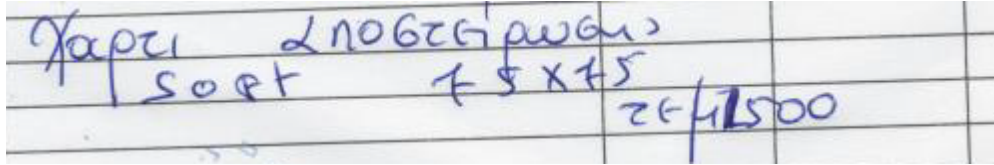 Χαρτι αποστείρωσης
soft 75x75
τεμ 1500